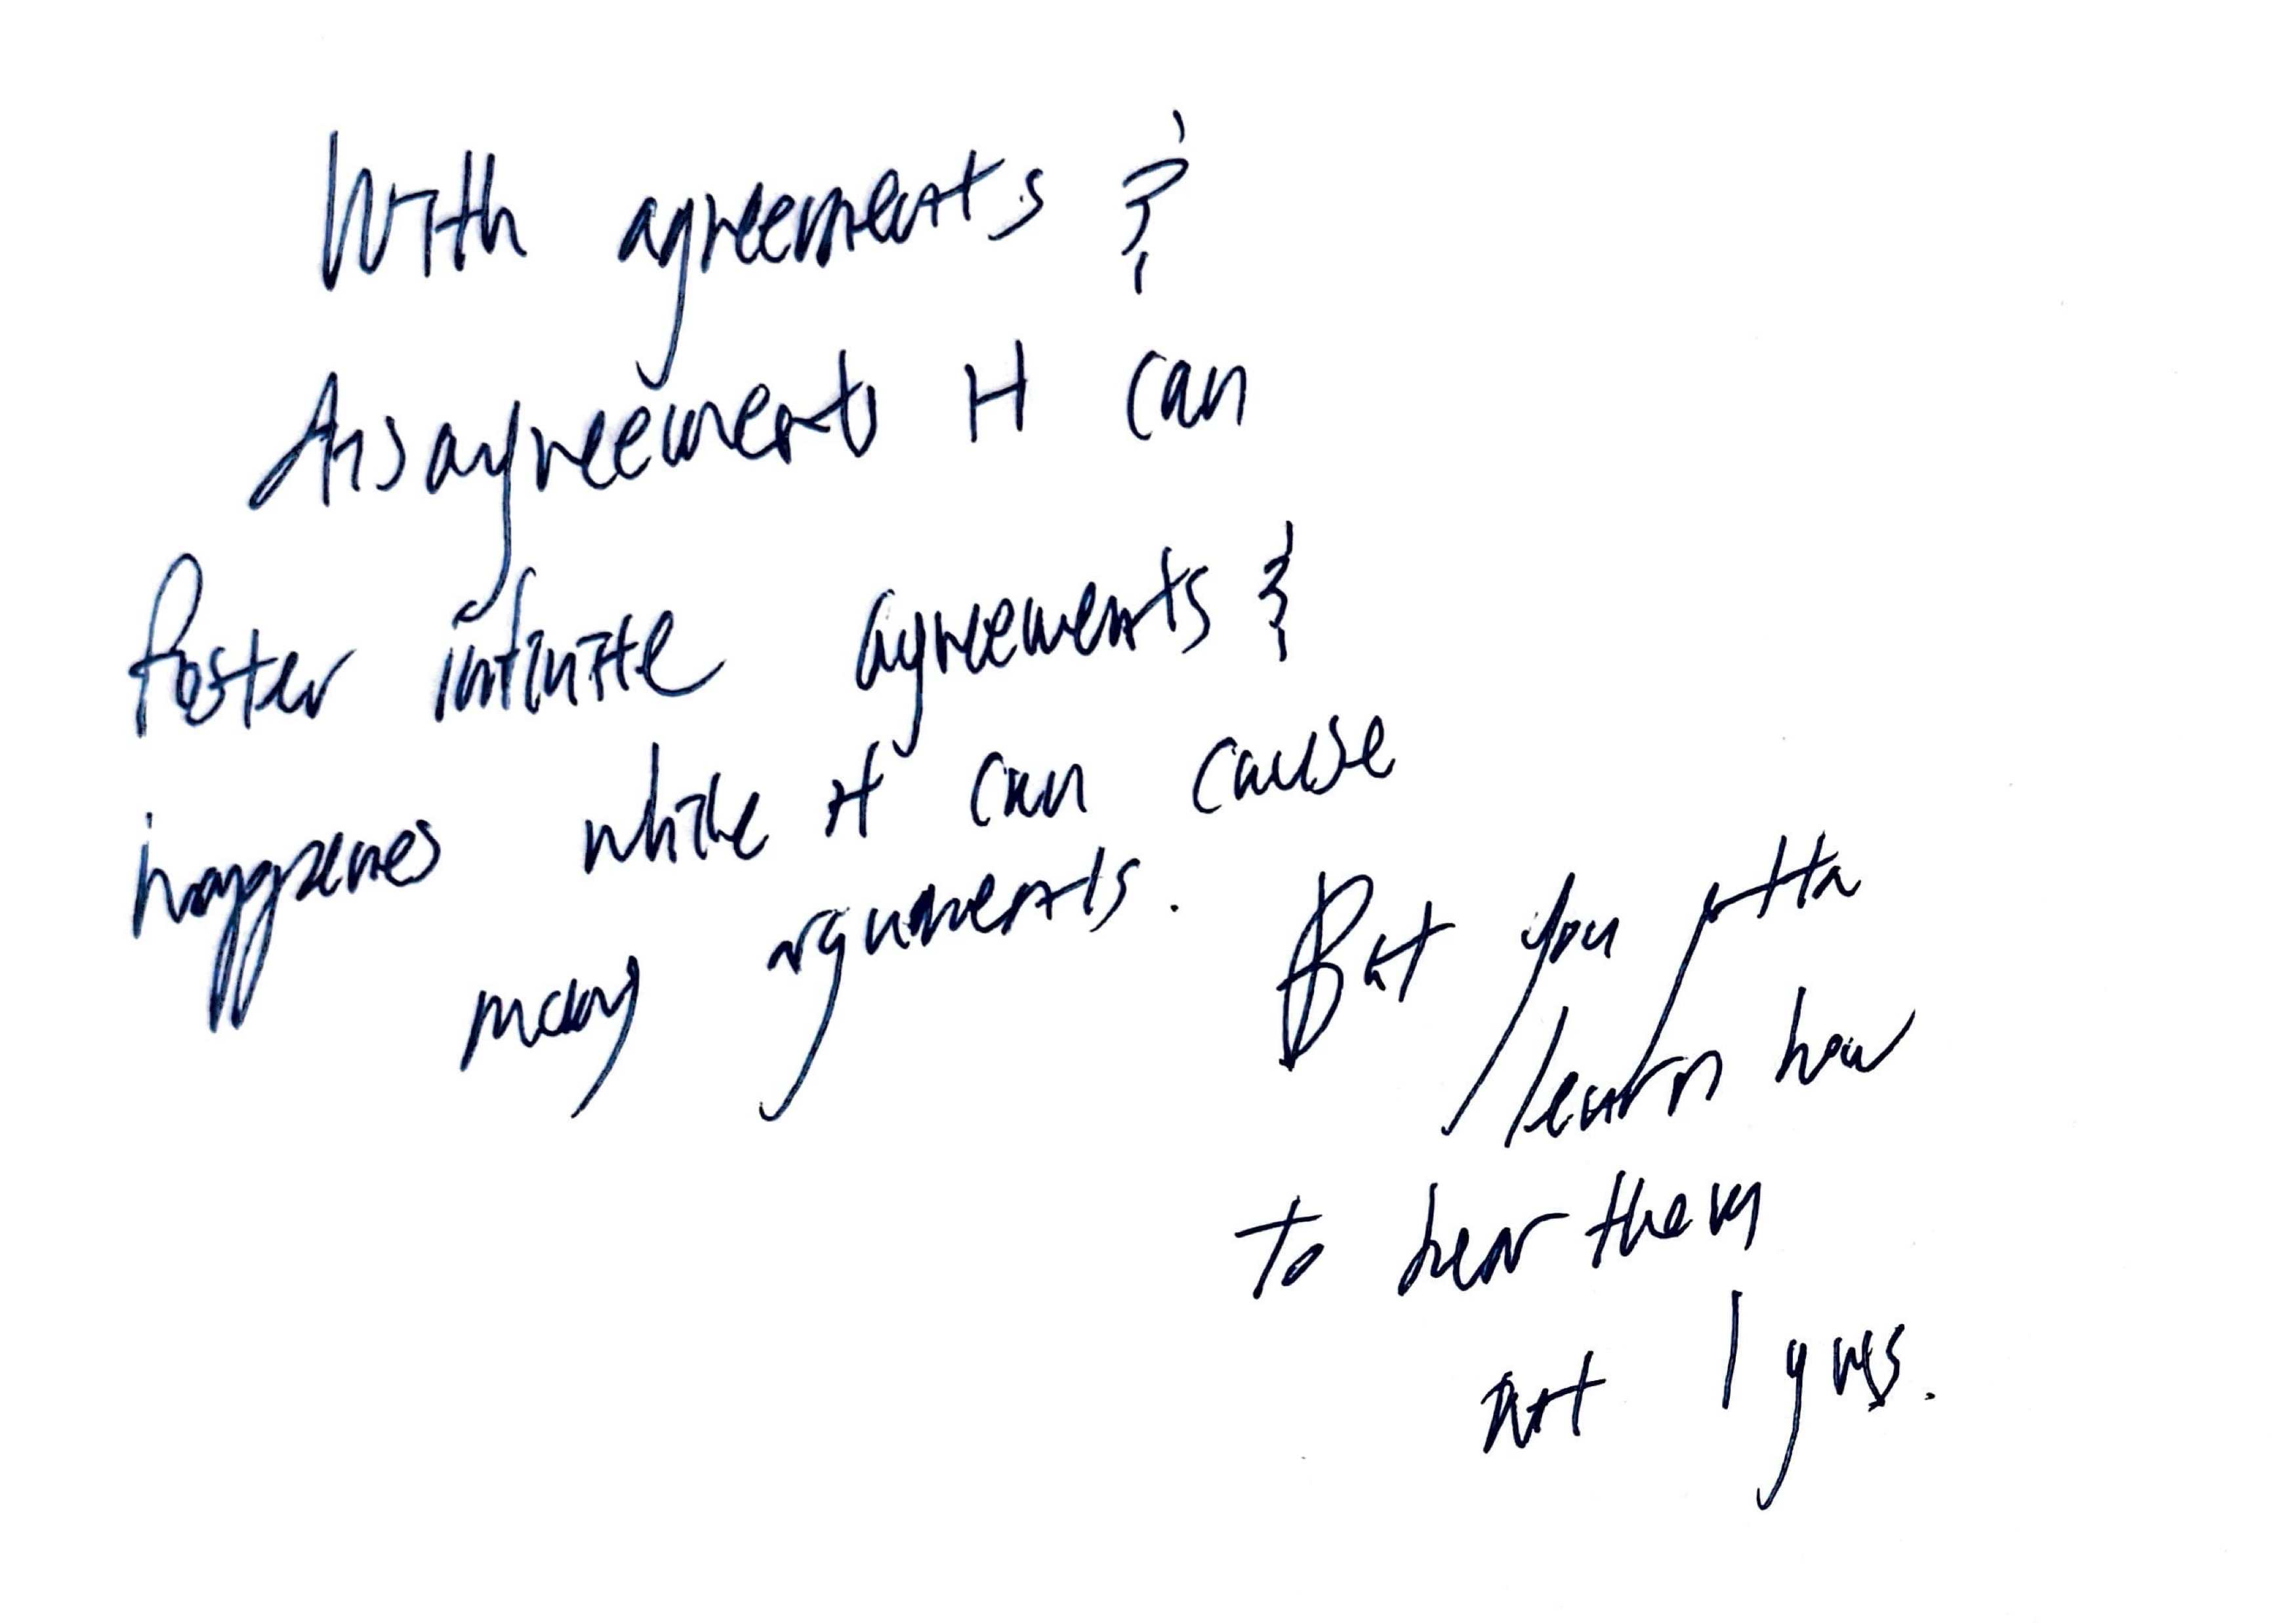 With agreements &
disagreements it can
foster infinite agreements &
happenes while it can cause
many arguments.
But you gotta
learn how
to hear them
out I guess.